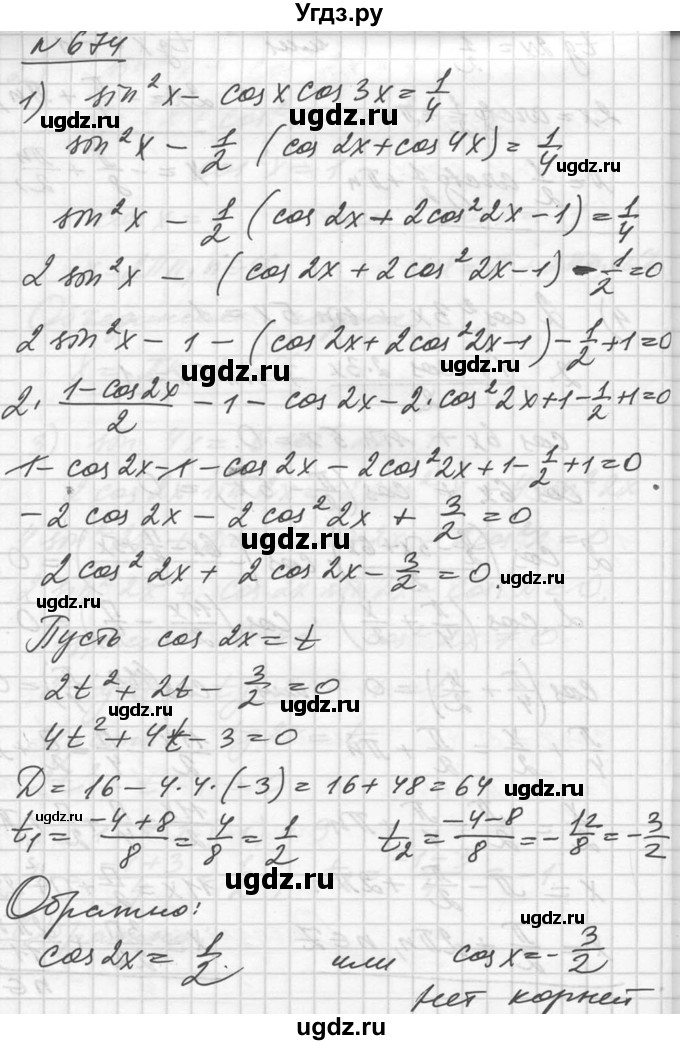 Угдз.ру
№ 674
1) sin²x - cos x cos 3x = 1/4
ugdz.ru
sin²x - 1/2 (cos 2x + cos 4x) = 1/4
ugdz.ru
sin²x - 1/2 (cos 2x + 2cos²2x - 1) = 1/4
ugdz.ru
2 sin²x - (cos 2x + 2cos²2x - 1) - 1/2 = 0
ugdz.ru
2 sin²x - 1 - (cos 2x + 2cos²2x - 1) - 1/2 + 1 = 0
ugdz.ru ugdz.ru
2 · (1 - cos 2x)/2 - 1 - cos 2x - 2 · cos²2x + 1 - 1/2 + 1 = 0
ugdz.ru
1 - cos 2x - 1 - cos 2x - 2cos²2x + 1 - 1/2 + 1 = 0
ugdz.ru
-2 cos 2x - 2 cos²2x + 3/2 = 0
ugdz.ru
2 cos²2x + 2 cos 2x - 3/2 = 0.
ugdz.ru
ugdz.ru
Пусть cos 2x = t
ugdz.ru
2t² + 2t - 3/2 = 0
ugdz.ru ugdz.ru
4t² + 4t - 3 = 0
D = 16 - 4·4·(-3) = 16 + 48 = 64
ugdz.ru
ugdz.ru
t₁ = (-4+8)/8 = 4/8 = 1/2 t₂ = (-4-8)/8 = -12/8 = -3/2
ugdz.ru
Обратно:
ugdz.ru
cos 2x = 1/2. или cos x = -3/2
нет корней
ugdz.ru